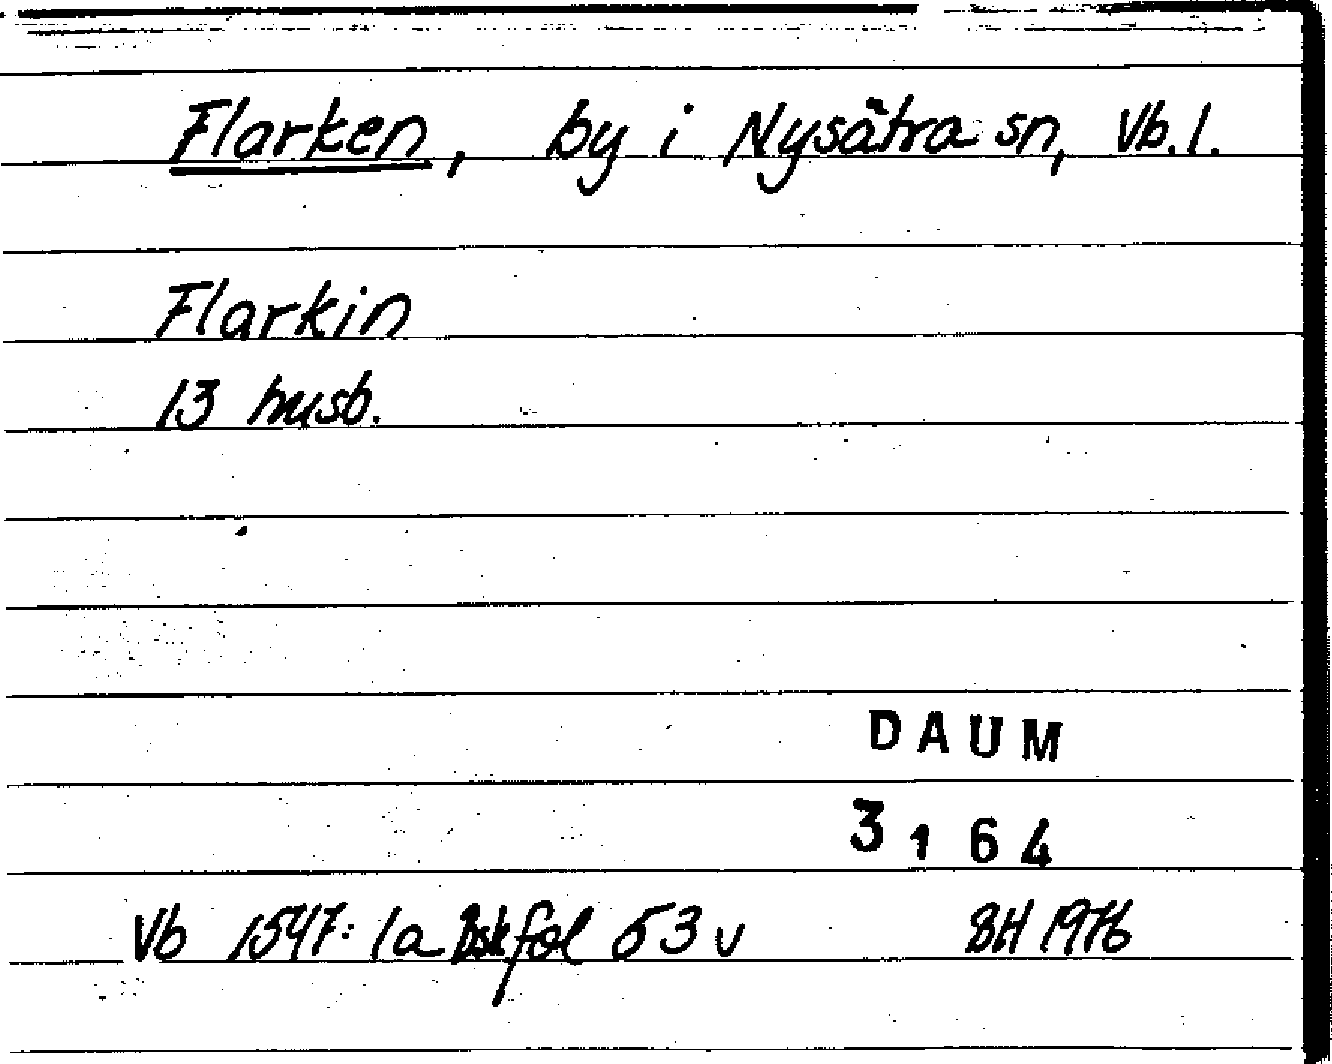 Flarken, by i Nysätra sn, Vb. l.
Flarkin
13 husb.
DAUM
3164
Vb 1547: 1a Bsk fol 53 v BH 1976